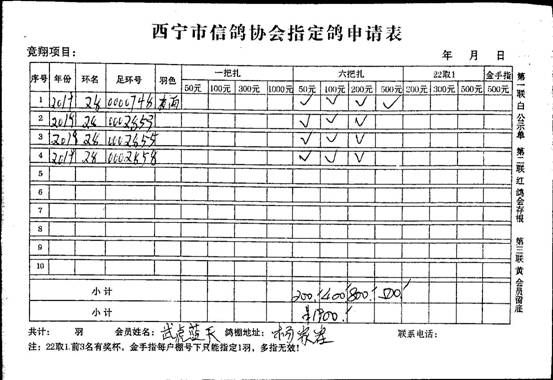 西宁市信鸽协会指定鸽申请表
竞翔项目： 年 月 日
序号 年份 环名 足环号 羽色 一把扎 六把扎 22取1 金手指
50元 100元 300元 1000元 50元 100元 200元 500元 200元 300元 500元 500元
1 2019 28 0000748 ✓ ✓ ✓ ✓
2 2019 28 0002853 ✓ ✓ ✓
3 2019 28 ✓ ✓ ✓
4 2019 28 0002858 ✓ ✓ ✓
5
6
7
8
9
10
小计 200 400 800 500
小计 1900
共计： 羽 会员姓名： 武虎蓝天 鸽棚地址： 杨家庄 联系电话：
注：22取1.前3名有奖杯，金手指每户棚号下只能指定1羽，多指无效！
第一联 白 公示单 第二联 红 鸽会存根 第三联 黄 会员留底